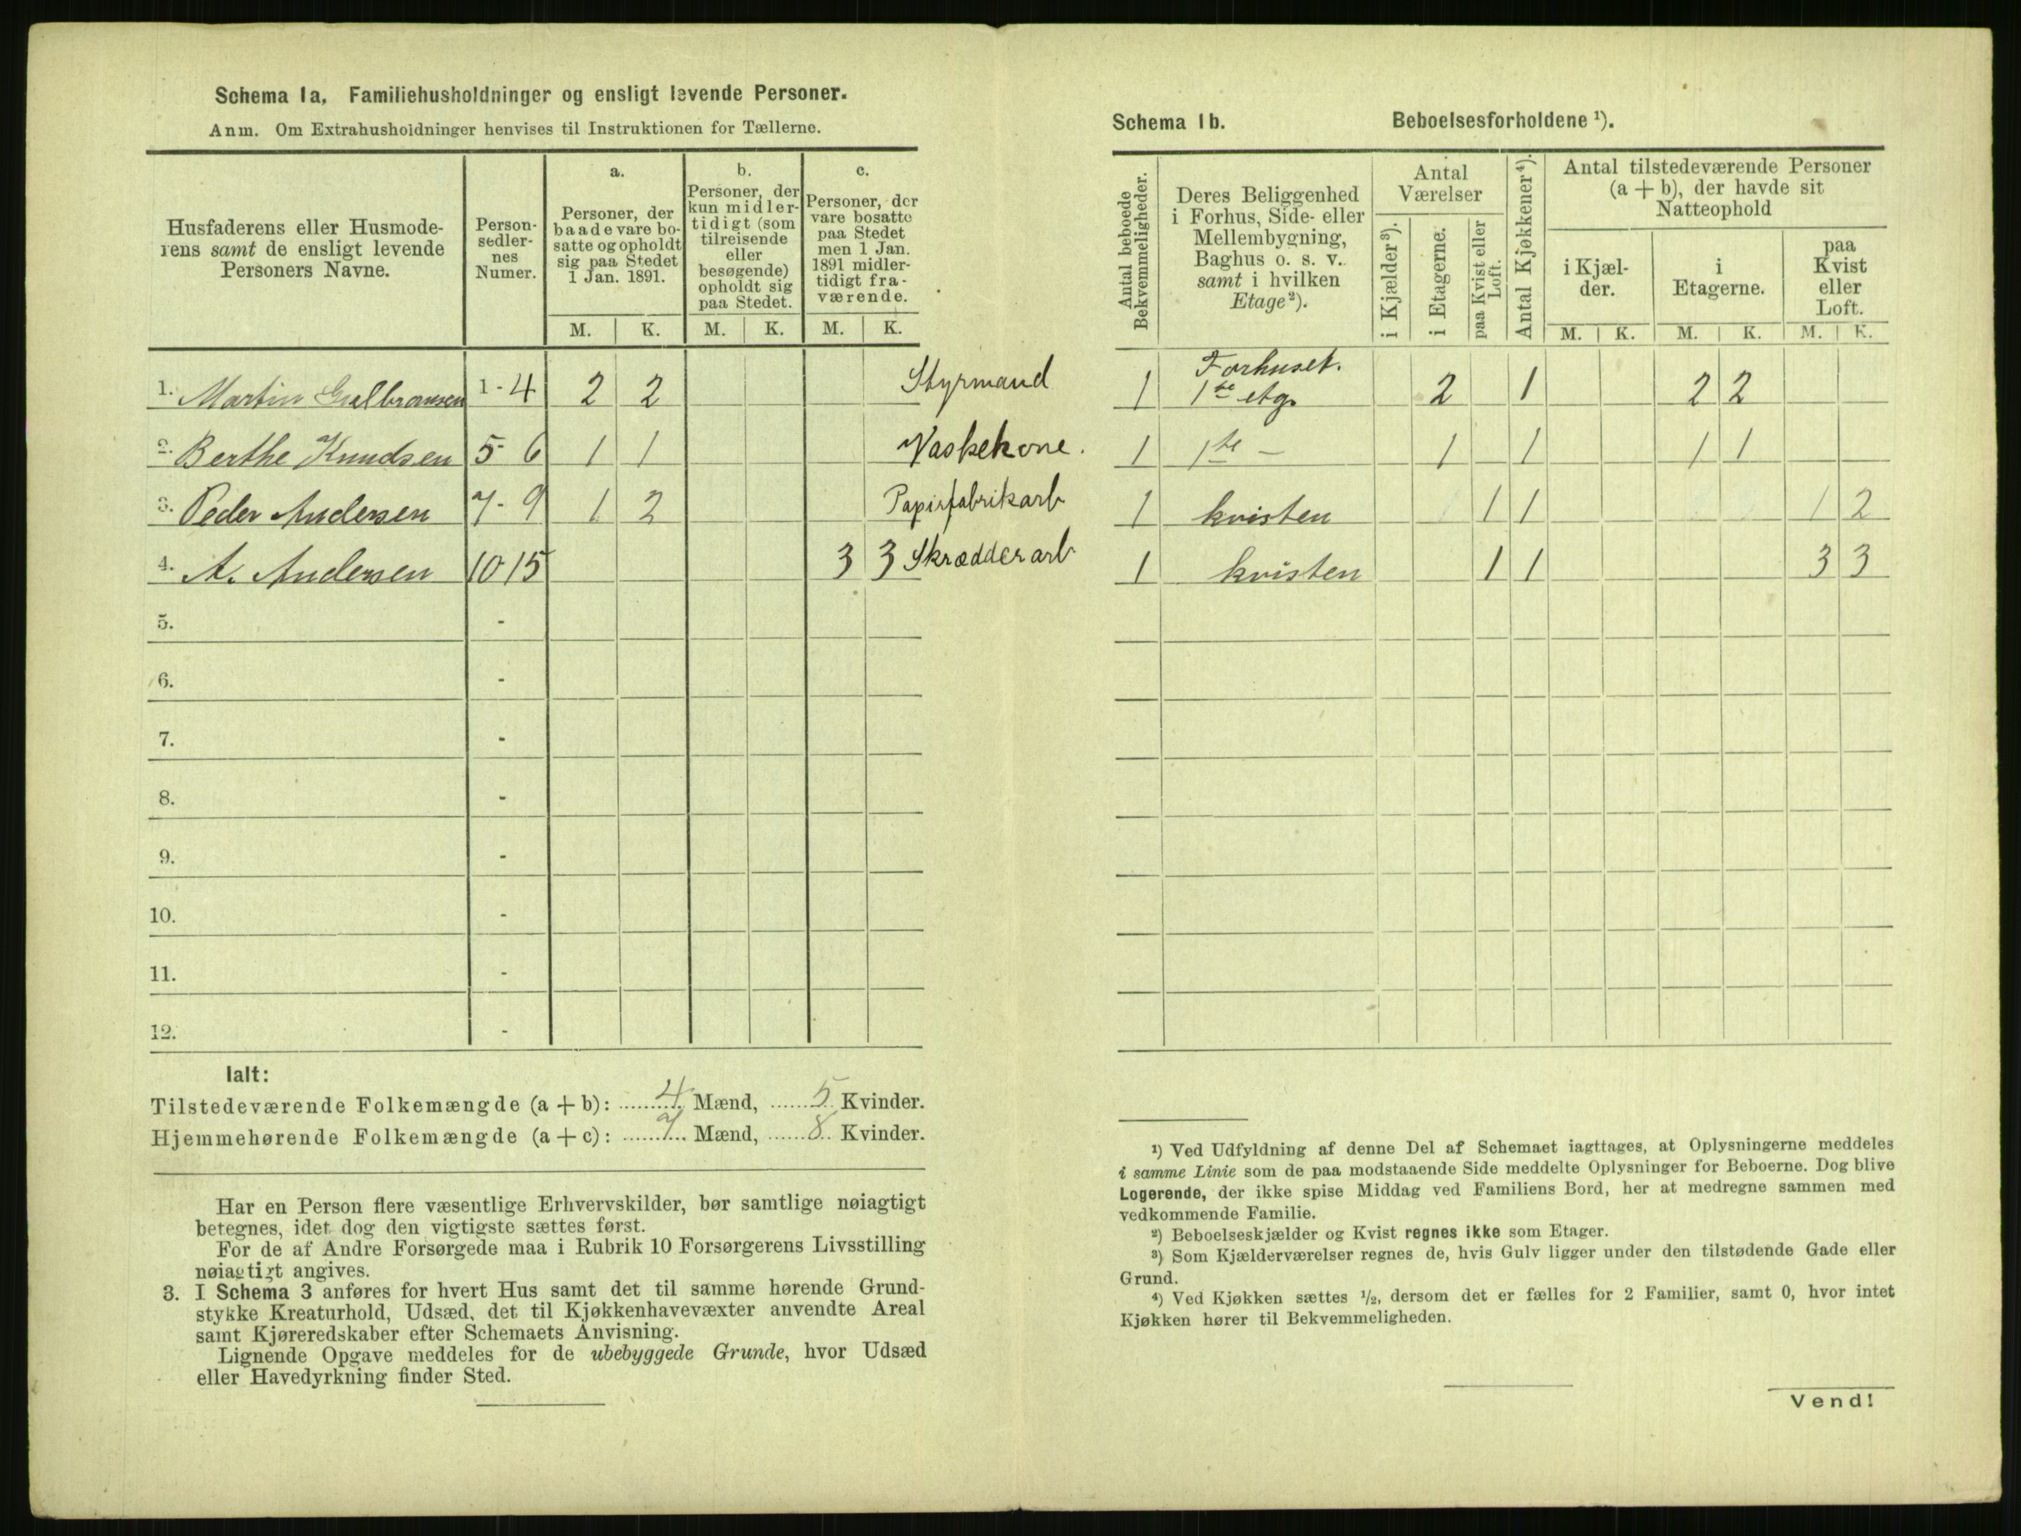 Schema 1a, Familiehusholdninger og ensligt levende Personer.
Anm. Om Extrahusholdninger henvises til Instruktionen for Tællerne.
Husfaderens eller Husmode-
rens samt de ensligt levende
Personers Navne.
Person-
sedler-
nes
Numer.
a.
Personer, der
baade vare bo-
satte og opholdt
sig paa Stedet
1 Jan. 1891.
b.
Personer, der
kun midler-
tidigt (som
tilreisende
eller
besøgende)
opholdt sig
paa Stedet.
c.
Personer, der
vare bosatte
paa Stedet
men 1 Jan.
1891 midler-
tidigt fra-
værende.
M. K. M. K. M. K.
1. Martin Gulbransen 1-4 2 2 Styrmand
2. Berthe Knudsen 5-6 1 1 Vaskekone.
3. Peder Andersen 7-9 1 2 Papirfabrikarb
4. A. Andersen 10-15 3 3 Skrædderarb
5. -
6. -
7. -
8. -
9. -
10. -
11. -
12. -
Ialt:
Tilstedeværende Folkemængde (a + b): 4 Mænd, 5 Kvinder.
Hjemmehørende Folkemængde (a + c): 7 Mænd, 8 Kvinder.
Har en Person flere væsentlige Erhvervskilder, bør samtlige nøiagtigt
betegnes, idet dog den vigtigste sættes først.
For de af Andre Forsørgede maa i Rubrik 10 Forsørgerens Livsstilling
nøiagtigt angives.
3. I Schema 3 anføres for hvert Hus samt det til samme hørende Grund-
stykke Kreaturhold, Udsæd, det til Kjøkkenhavevæxter anvendte Areal
samt Kjøreredskaber efter Schemaets Anvisning.
Lignende Opgave meddeles for de ubebyggede Grunde, hvor Udsæd
eller Havedyrkning finder Sted.
Schema 1b. Beboelsesforholdene ¹).
Antal beboede
Bekvemmeligheder.
Deres Beliggenhed
i Forhus, Side- eller
Mellembygning,
Baghus o. s. v.
samt i hvilken
Etage ²).
Antal
Værelser
i Kjælder ³).
i Etagerne.
paa Kvist eller
Loft.
Antal Kjøkkener ⁴).
Antal tilstedeværende Personer
(a + b), der havde sit
Natteophold
i Kjæl-
der.
i
Etagerne.
paa
Kvist
eller
Loft.
M. K. M. K. M. K.
Forhuset.
1 1ste etg. 2 1 2 2
1 1ste — 1 1 1 1
1 kvisten 1 1 1 2
1 kvisten 1 1 3 3
¹) Ved Udfyldning af denne Del af Schemaet iagttages, at Oplysningerne meddeles
i samme Linie som de paa modstaaende Side meddelte Oplysninger for Beboerne. Dog blive
Logerende, der ikke spise Middag ved Familiens Bord, her at medregne sammen med
vedkommende Familie.
²) Beboelseskjælder og Kvist regnes ikke som Etager.
³) Som Kjælderværelser regnes de, hvis Gulv ligger under den tilstødende Gade eller
Grund.
⁴) Ved Kjøkken sættes ½, dersom det er fælles for 2 Familier, samt 0, hvor intet
Kjøkken hører til Bekvemmeligheden.
Vend!